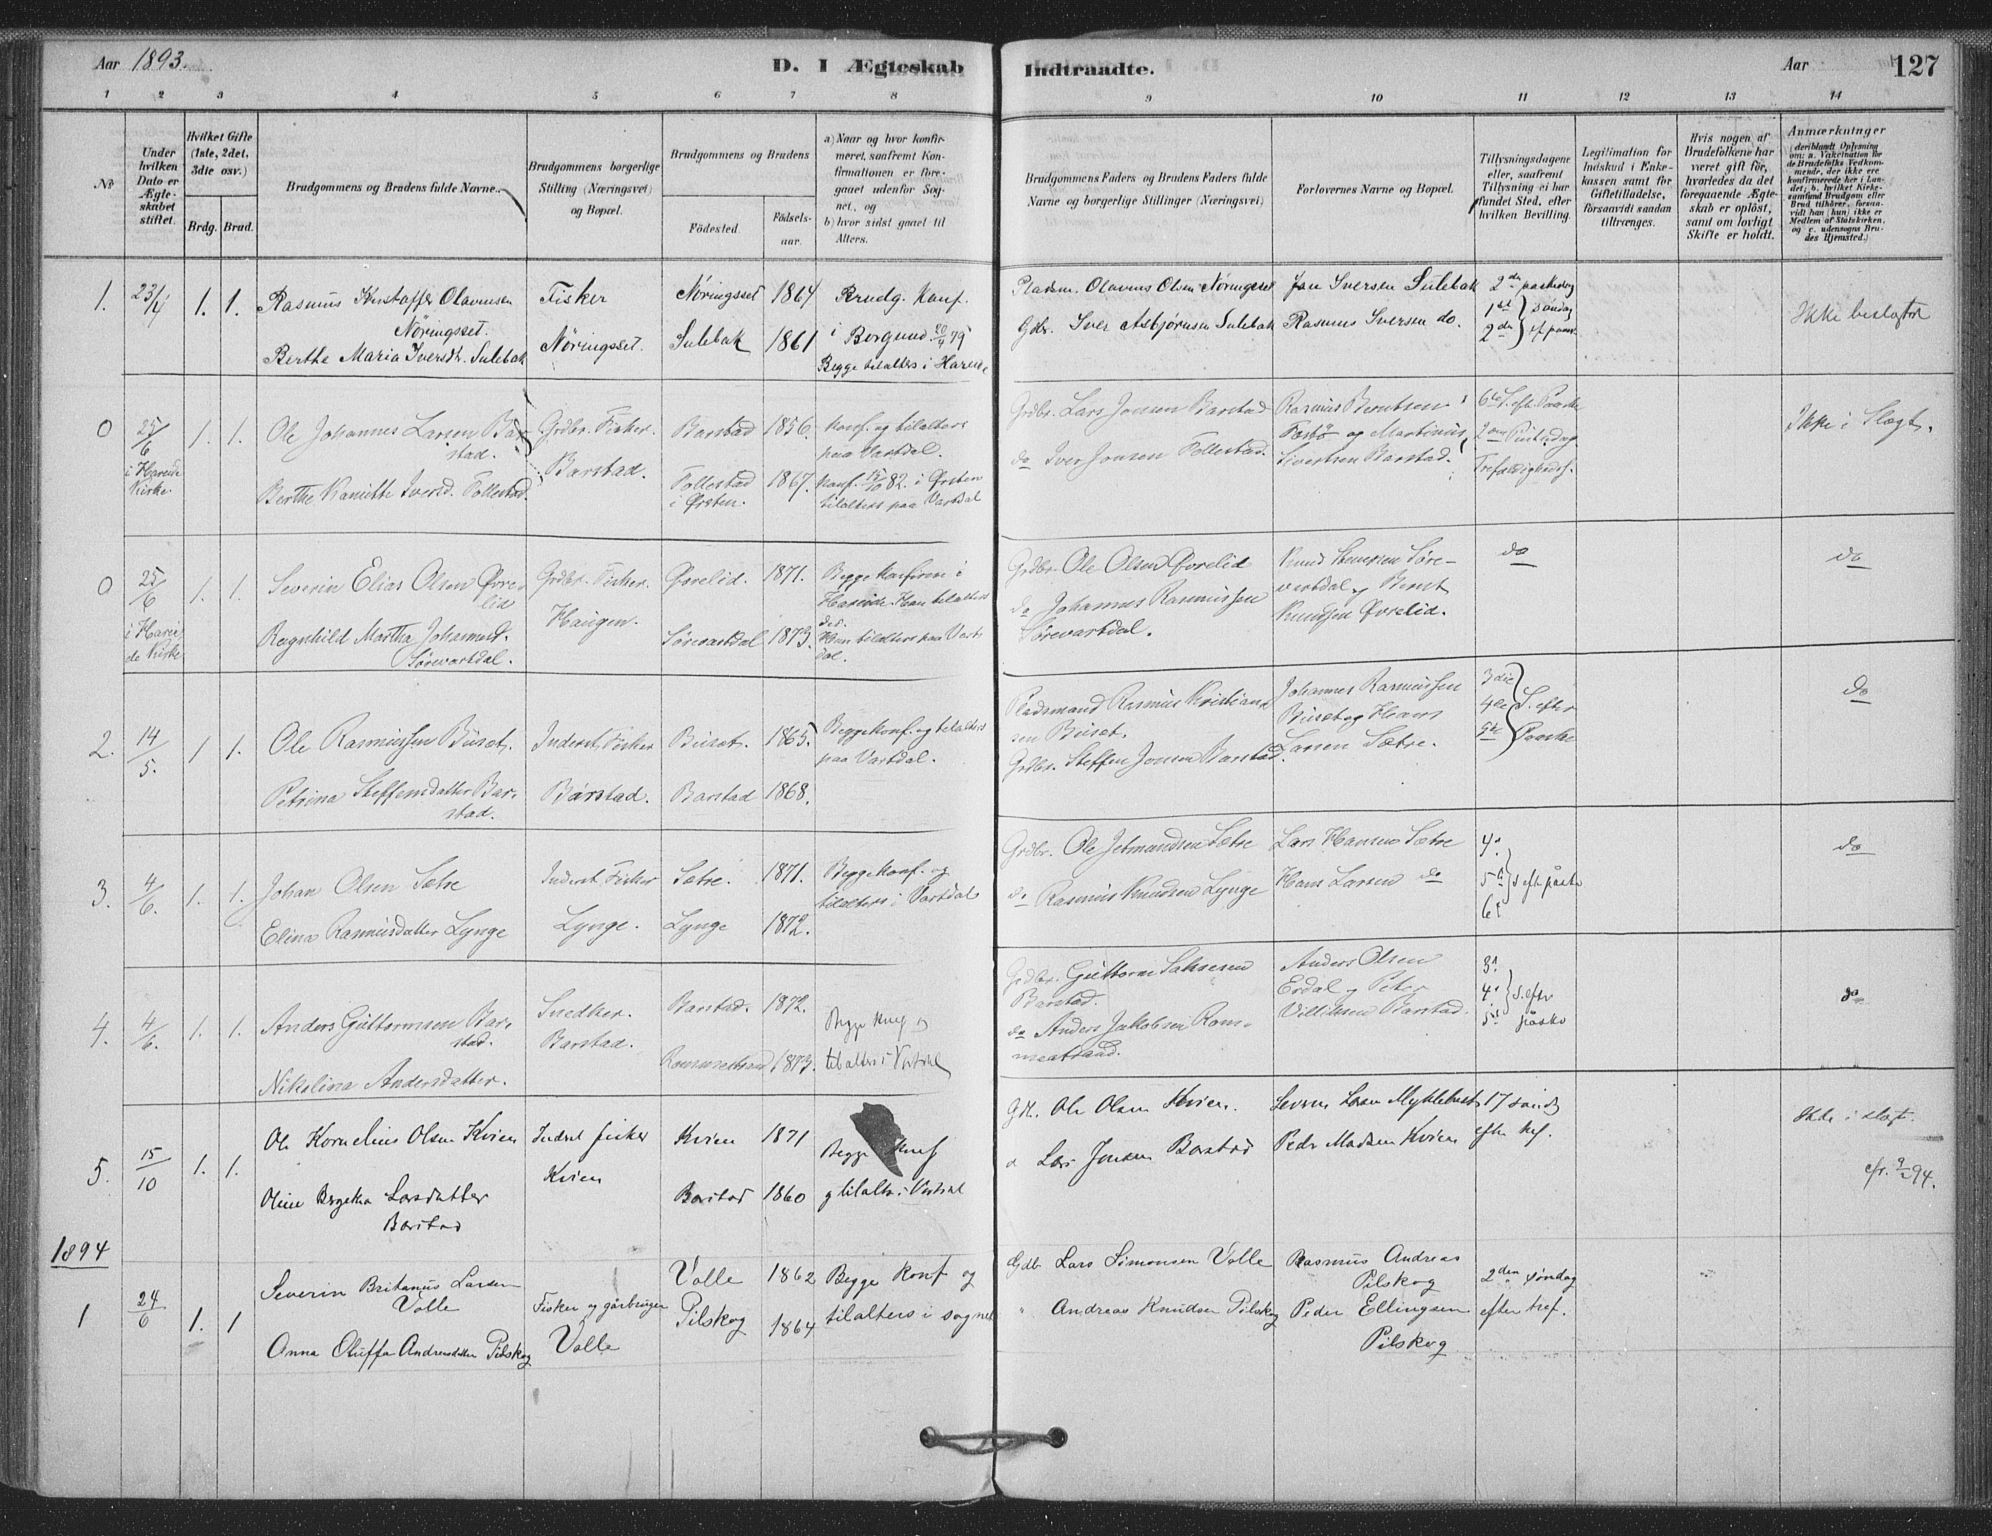 Aar 1893.
D. I Ægteskab Indtraadte.
Aar
127
1 2 3 4 5 6 7 8 9 10 11 12 13 14
No
Under hvilken Dato er Ægteskabet stiftet.
Hvilket Gifte (1ste, 2det, 3die osv.)
Brdg. Brud.
Brudgommens og Brudens fulde Navne.
Brudgommens borgerlige Stilling (Næringsvei) og Bopæl.
Brudgommens og Brudens
Fødested.
Fødselsaar.
a) Naar og hvor konfirmeret, saafremt Konfirmationen er foregaaet udenfor Sognet, og
b) hvor sidst gaaet til Alters.
Brudgommens Faders og Brudens Faders fulde Navne og borgerlige Stillinger (Næringsvei)
Forlovernes Navne og Bopæl.
Tillysningsdagene eller, saafremt Tillysning ei har fundet Sted, efter hvilken Bevilling.
Legitimation for Indskud i Enkekassen samt for Giftetilladelse, forsaavidt saadan tiltrænges.
Hvis nogen af Brudefolkene har været gift før, hvorledes da det foregaaende Ægteskab er opløst, samt om lovligt Skifte er holdt.
Anmærkninger (deriblandt Oplysning om: a. Vakcination for de Brudefolks Vedkommende, der ikke ere konfirmerede her i Landet; b. hvilket Kirkesamfund Brudgom eller Brud tilhører, forsaavidt han (hun) ikke er Medlem af Statskirken, og c. udensogns Brudes Hjemsted.)
1. 23/4 1. 1.
Rasmus Kristaffer Olavusen
Nøringsset.
Berthe Maria Iversdtr. Sulebak
Fisker
Nøringsset.
Nøringsset 1864
Sulebak 1861
Brudg. Konf.
i Borgund 20/4 79
Begge tilalters i Hareide
Pladsm. Olavus Olsen Nøringsset
Gdbr. Iver Asbjørnsen Sulebak
Jon Iversen Sulebak
Rasmus Iversen do.
2den paaskedag
1ste søndag
2den ef paaske
Ikke beslægtet
0 25/6 i Hareide Kirke. 1. 1.
Ole Johannes Larsen Barstad.
Berthe Kanutte Iversd. Follestad.
Grdbr. Fisker.
Barstad.
Barstad 1856.
Follestad i Ørsten. 1867.
Konf. og tilalters
paa Vartdal.
Konf. 15/10 82. i Ørsten
tilalters paa Vartdal
Grdbr. Lars Jonsen Barstad
do Iver Jonsen Follestad.
Rasmus Berntsen
Festø og Martinus
Sivertsen Barstad.
6te S. eft. Paaske
2den Pintsedag
Trefoldighedsf.
Ikke i Slægt.
0 25/6 i Hareide Kirke 1. 1.
Severin Elias Olsen Øvrelid
Ragnhild Martha Johannesd.
Sørevartdal.
Grdbr. Fisker.
Haugen.
Øvrelid. 1871.
Sørevartdal 1873.
Begge konfirm. i
Hareide. Han tilalters
do.
Hun tilalters paa Vartdal.
Grdbr. Ole Olsen Øvrelid
do Johannes Rasmussen
Sørevartdal.
Knud Knudsen Sørevartdal og Bernt
Knudsen Øvrelid.
do
do
2. 14/5. 1. 1.
Ole Rasmussen Buset.
Petrina Steffensdatter Barstad.
Inderst. Fisker
Barstad.
Buset. 1865.
Barstad 1868.
Begge konf. og tilalters
paa Vartdal.
Pladsmand Rasmus Kristiansen Buset.
Grdbr. Steffen Jonsen Barstad.
Johannes Rasmussen
Buset og Hans
Larsen Sætre.
3die
4de S. efter
5te Paaske
do
3. 4/6. 1. 1.
Johan Olsen Sætre
Elina Rasmusdatter Lynge
Inderst. Fisker
Lynge.
Sætre. 1871.
Lynge 1872.
Begge konf. og
tilalters i Vartdal
Grdbr. Ole Jetmundsen Sætre
do Rasmus Knudsen Lynge
Lars Hansen Sætre
Hans Larsen do
4.
5te S. eft påske
6te
do
4. 4/6. 1. 1.
Anders Guttormsen Barstad.
Nikolina Andersdatter.
Snedker.
Barstad.
Barstad. 1872.
1873.
Begge konf og
tilalters i Vartdal
Grdbr. Guttorm
Barstad.
do Anders Jakobsen
Anders Olsen
Erdal og Peter
Barstad.
3.
4. S. efter
5te påske
do
5. 15/10 1. 1.
Ole Kornelius Olsen Kvien
Oline Bergetha Larsdatter
Barstad
Inderst fisker
Kvien
Kvien 1871
Barstad 1860
Begge konf
og tilalters i Vartdal
Gdb. Ole Olsen Kvien.
d Lars Jonsen Barstad
Severin Larsen Myklebust
Peder Madsen Kvien
17 sønd
efter tref.
Ikke i slægt.
cfr. 9/2 94.
1894
1 24/6 1. 1
Severin Britanus Larsen
Valle
Anna Oluffa Andreasdatter Pilskog
Fisker og gårbruger
Valle
Valle 1862
Pilskog 1864
Begge konf og
tilalters i sognet
Gdb Lars Simonsen Valle
" Andreas Knudsen Pilskog
Rasmus Andreas
Pilskog
Peder Ellingsen
Pilskog
2den søndag
efter tref.